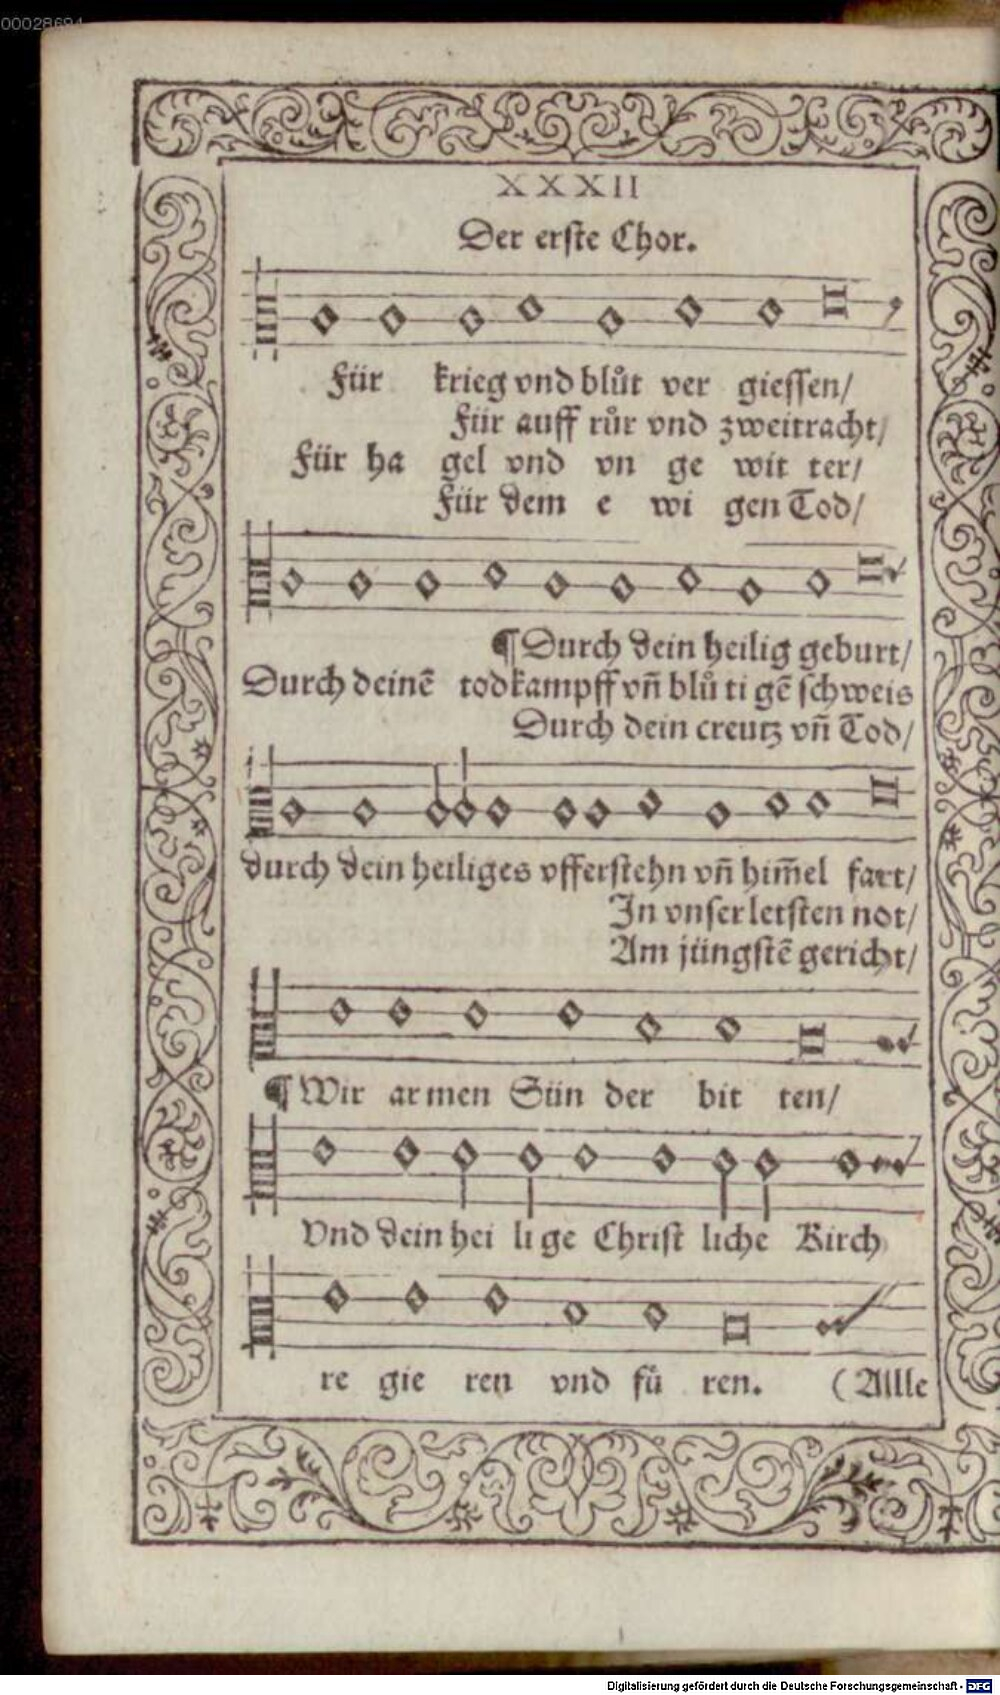 00028694
XXXII
Der erste Chor.
Für krieg vnd blůt ver giessen/
Für auff růr vnd zweitracht/
Für ha gel vnd vn ge wit ter/
Für dem e wi gen Tod/
¶ Durch dein heilig geburt/
Durch deinẽ todkampff vn̄ blů ti gẽ schweis
Durch dein creutz vn̄ Tod/
durch dein heiliges vfferstehn vn̄ him̄el fart/
In vnser letsten not/
Am jüngstẽ gericht/
¶ Wir ar men Sün der bit ten/
Vnd dein hei li ge Christ liche Kirch
re gie ren vnd fü ren. (Allle
Digitalisierung gefördert durch die Deutsche Forschungsgemeinschaft - DFG